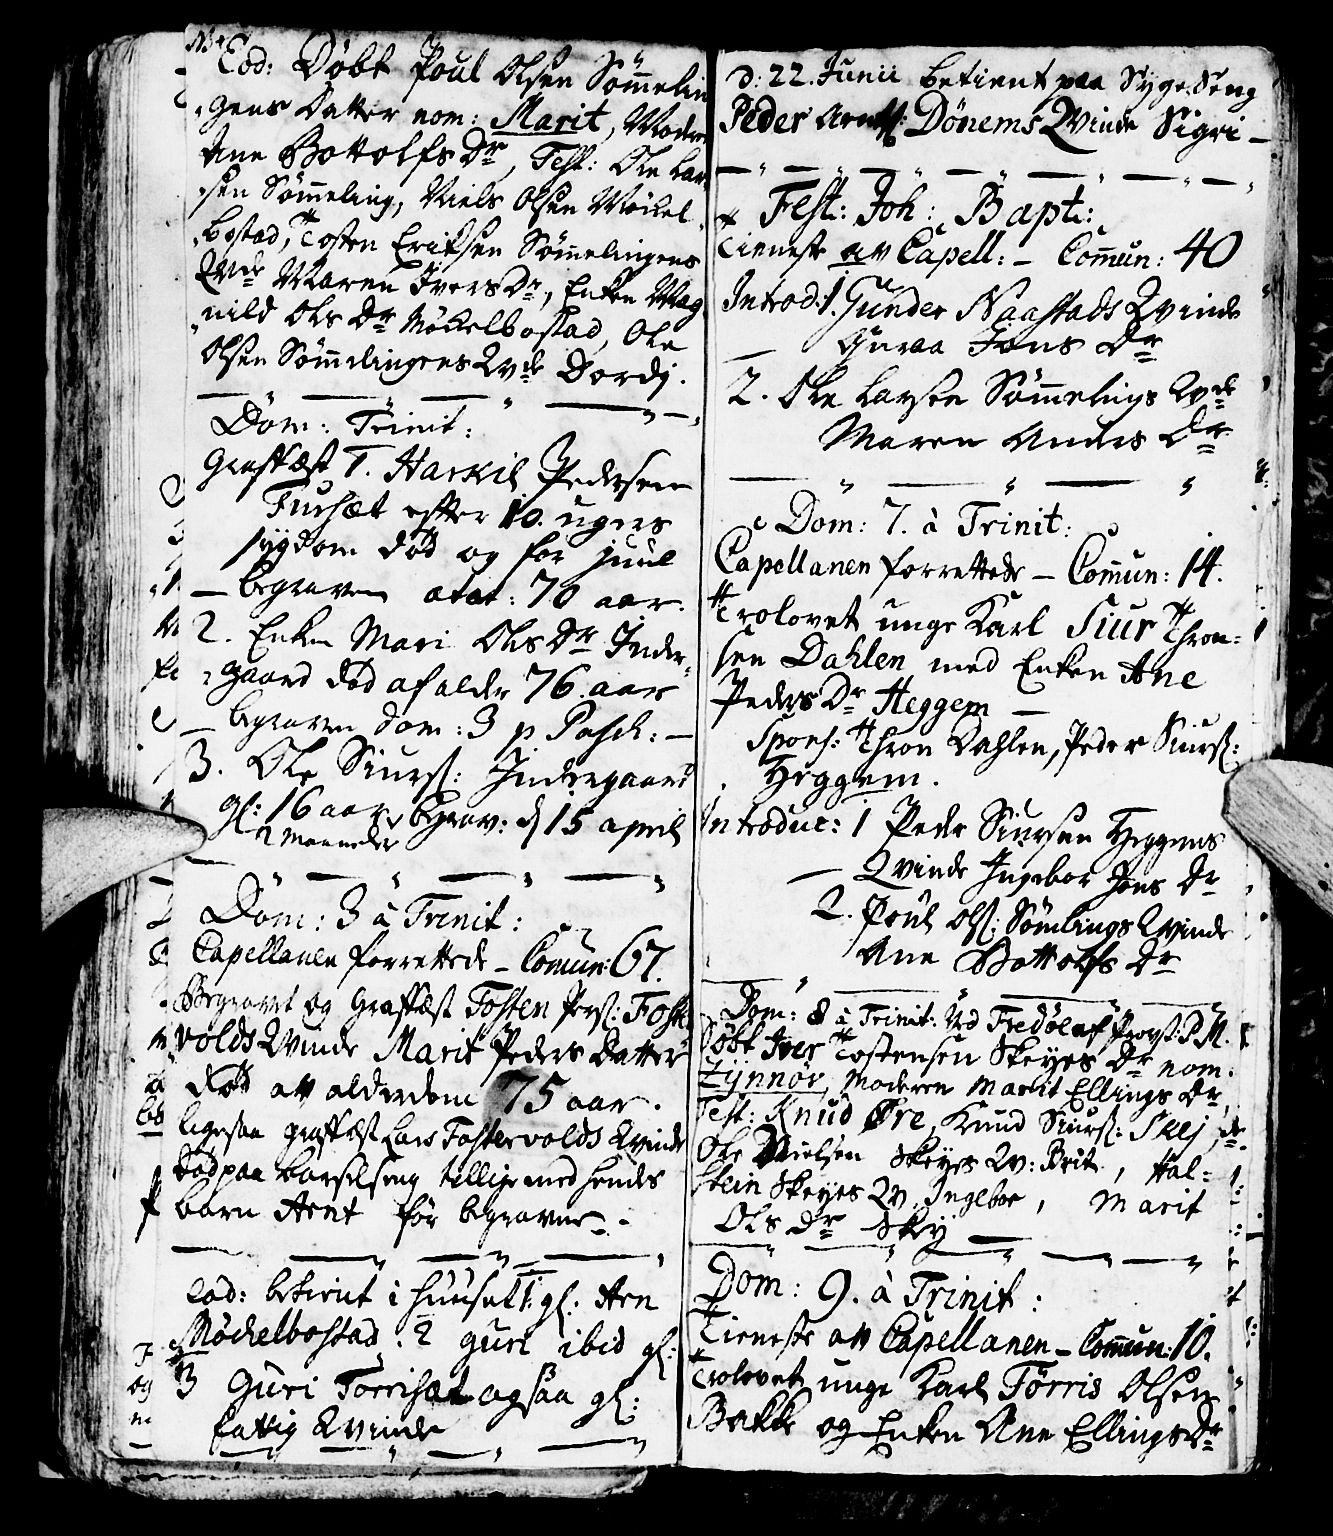 Eod: Döbt Poul Olsen Sömmelin
gens Datter nom: Marit, Moderen
Ane Bottolfs Dr, Test: Ole Lar
sen Sömmeling, Niels Olsen Möckel
bostad, Tosten Eriksen Sömmelingens
Qvde Maren Ivers Dr, Enken Mag
nild Ols Dr Möckelbostad, Ole
Olsen Sömmelingens Qvde Dordj.
Dom: Trinit:
Grafkæst 1. Harkil Pedersen
Fursæt efter 10. ugers
sygdom död og for juul
begraven ætat: 70 aar.
2. Enken Mari Ols Dr Inder
gaard död af alder 76. aar
begraven Dom: 3 p Pasch: —
3. Ole Siurs: Indergaard
gl: 16 aar begrav: d 15 april
2 Maaneder
Dom: 3 à Trinit:
Capellanen forrettede – Comun: 67.
Begravet og Grafkæst Tosten Pers: Foster
volds Qvinde Marit Peders Datter
död av alderdom 75 aar.
ligesaa grafkæst Lars Fostervolds Qvinde
död paa barselseng tillige med hendes
barn Arnt för begraven.
Eod: betient i huuset 1. gl: Arn
Möckelbostad. 2 guri ibid gl:
3 Guri Torrisæt ogsaa gl:
fattig Qvinde
d: 22. Junii betient paa Syge Seng
Peder Arnts: Dönems Qvinde Sigri –
Fest: Joh: Bapt:
Tieneste av Capell: – Comun: 40
Introd: 1. Gunder Naastads Qvinde
Guraa Jons Dr
2. Ole Larsen Sömmelings Qvde
Maren Anders Dr
Dom: 7. à Trinit:
Capellanen forrettede – Comun: 14.
Trolovet unge Karl Siur Thron=
sen Dahlen med Enken Ane
Peders Dr Heggem —
Spons: Thron Dahlen, Peder Siurs:
Heggem.
Introduc: 1 Peder Siursen Heggems
Qvinde Ingebor Jons Dr
2. Poul Ols: Sömlings Qvinde
Ane Bottolfs Dr
Dom: 8 à Trinit: Ved Fredöl af Provst: P. M.
Döbt Iver Tostensen Skeyes Dr nom:
Zÿnnör, Moderen Marit Ellings Dr,
Test: Knud Øre, Knud Siurs: Skej,
Ole Nielsen Skeyes Qv: Brit, Hal=
stein Skeyes Qv Ingebor, Marit
Ols Dr Skey —
Dom: 9. à Trinit:
Tieneste av Capellanen – Comun: 10.
Trolovet unge Karl Törris Olsen
Bakke og Enken Ane Ellings Dr